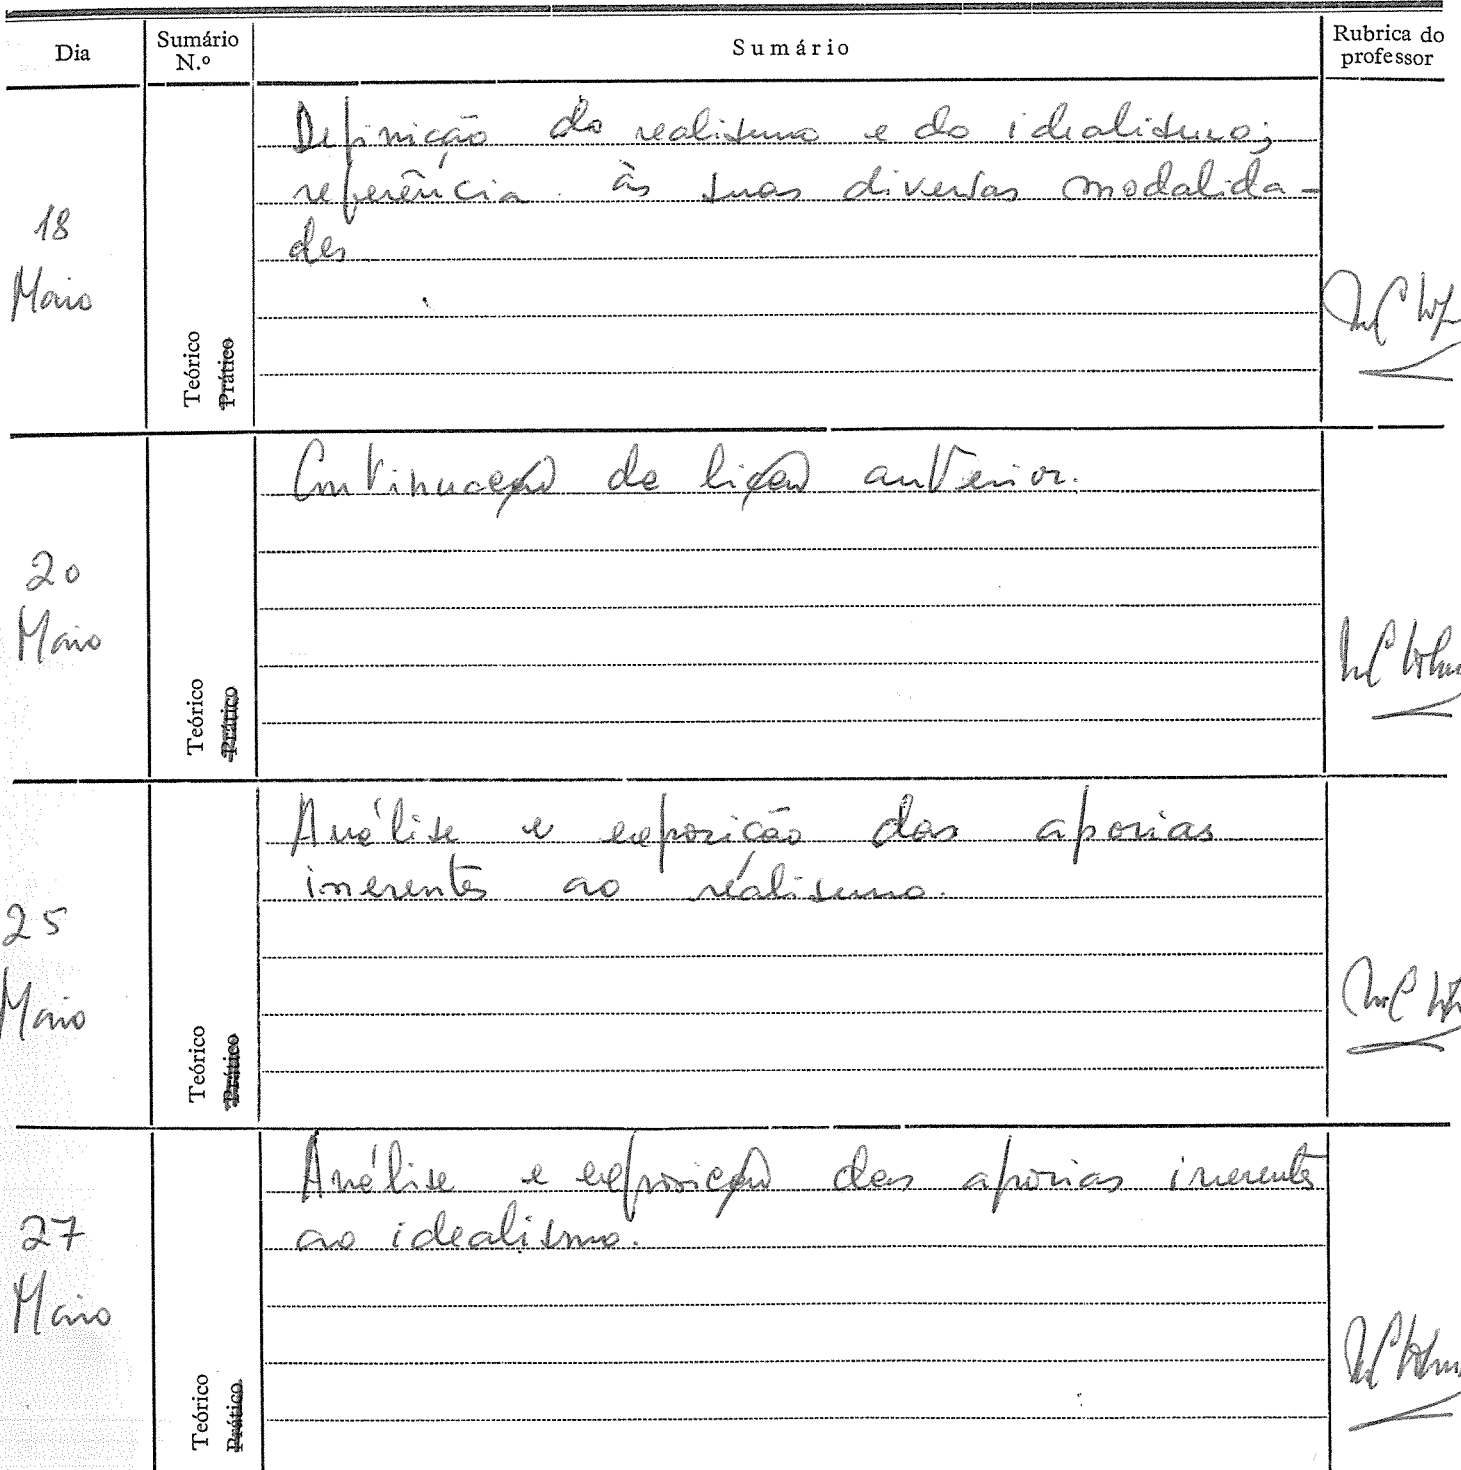 Dia
Sumário N.º
Sumário
Rubrica do professor
18 Maio
Teórico
Prático
Definição do realismo e do idealismo;
referência às suas diversas modalida-
des
20 Maio
Teórico
Prático
Continuação da lição anterior.
25 Maio
Teórico
Prático
Análise e exposição das aporias
inerentes ao realismo.
27 Maio
Teórico
Prático
Análise e exposição das aporias inerentes
ao idealismo.